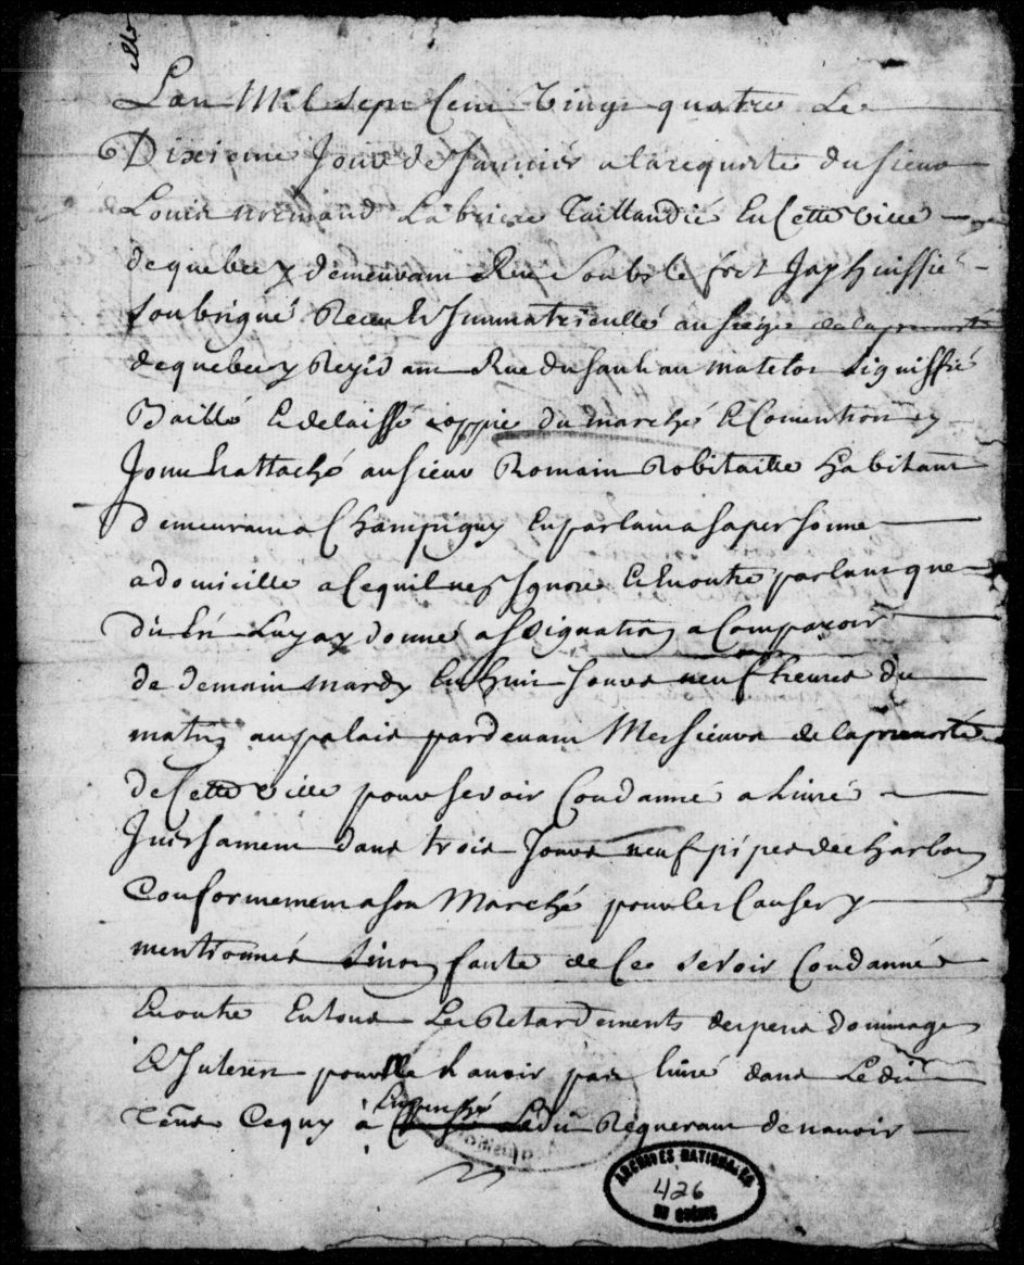 Lan Mil sept Cent Vingt quatre Le
Dixieme Jour de Janvier a la requeste du Sieur
Louis normand Labriere Taillandié En Cette Ville
de quebecq demeurant Rue Soubs le fort Jay huissié
soubsigné Receu Et Jmmatriculle au siege de la prevosté
de quebecq Residant Rue du Sault au matelot signiffié
Baillé Et delaissé coppie du marché Et Convention cy
Joint Et attaché au Sieur Romain Robitaille habitant
demeurant a Champigny En parlant a sa personne
a domicille a Ce quil nen Jgnore Et En outre parlant que
dit Est Luy ay donné assignation a Comparoir
de demain mardy En huit Jours neuf heures du
matin au palais pardevant Messieurs de la prevosté
de Cette Ville pour se voir Condanné a Livré
Jncessament dans trois Jours neuf pipes de charbon
Conformement a son Marché pour les Causes y
mentionnés sinon faute de Ce se voir Condanné
En outre En tous Les Retardements despens dommages
Et Jnterest pour ne Lavoir pas livré dans Ledit
Tems Ce quy à Empesché Ledit Requerant de navoir
ARCHIVES NATIONALES
426
DU QUÉBEC